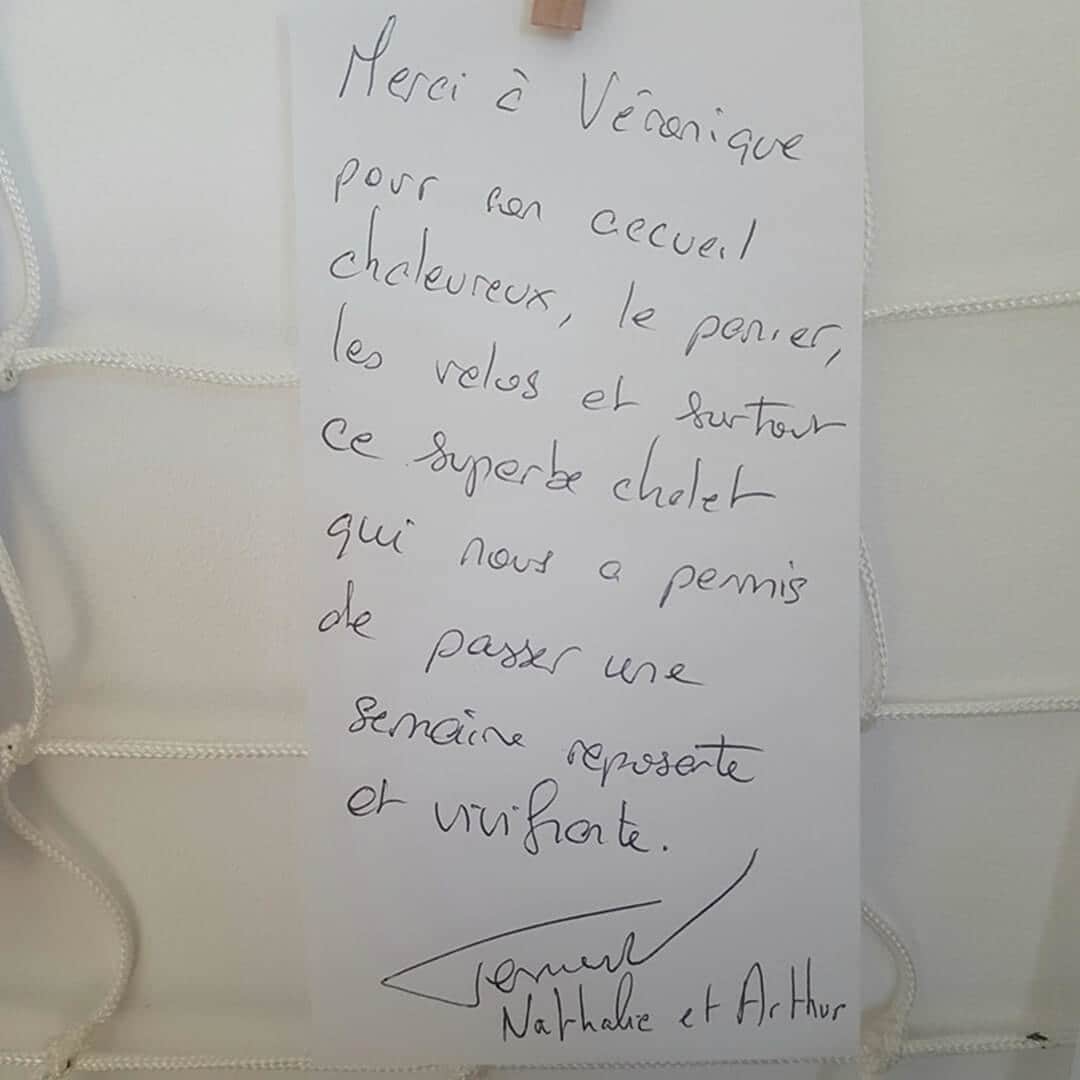 Merci à Véronique
pour son accueil
chaleureux, le panier,
les velos et surtout
ce superbe chalet
qui nous a permis
de passer une
semaine reposante
et vivifiante.
Nathalie et Arthur